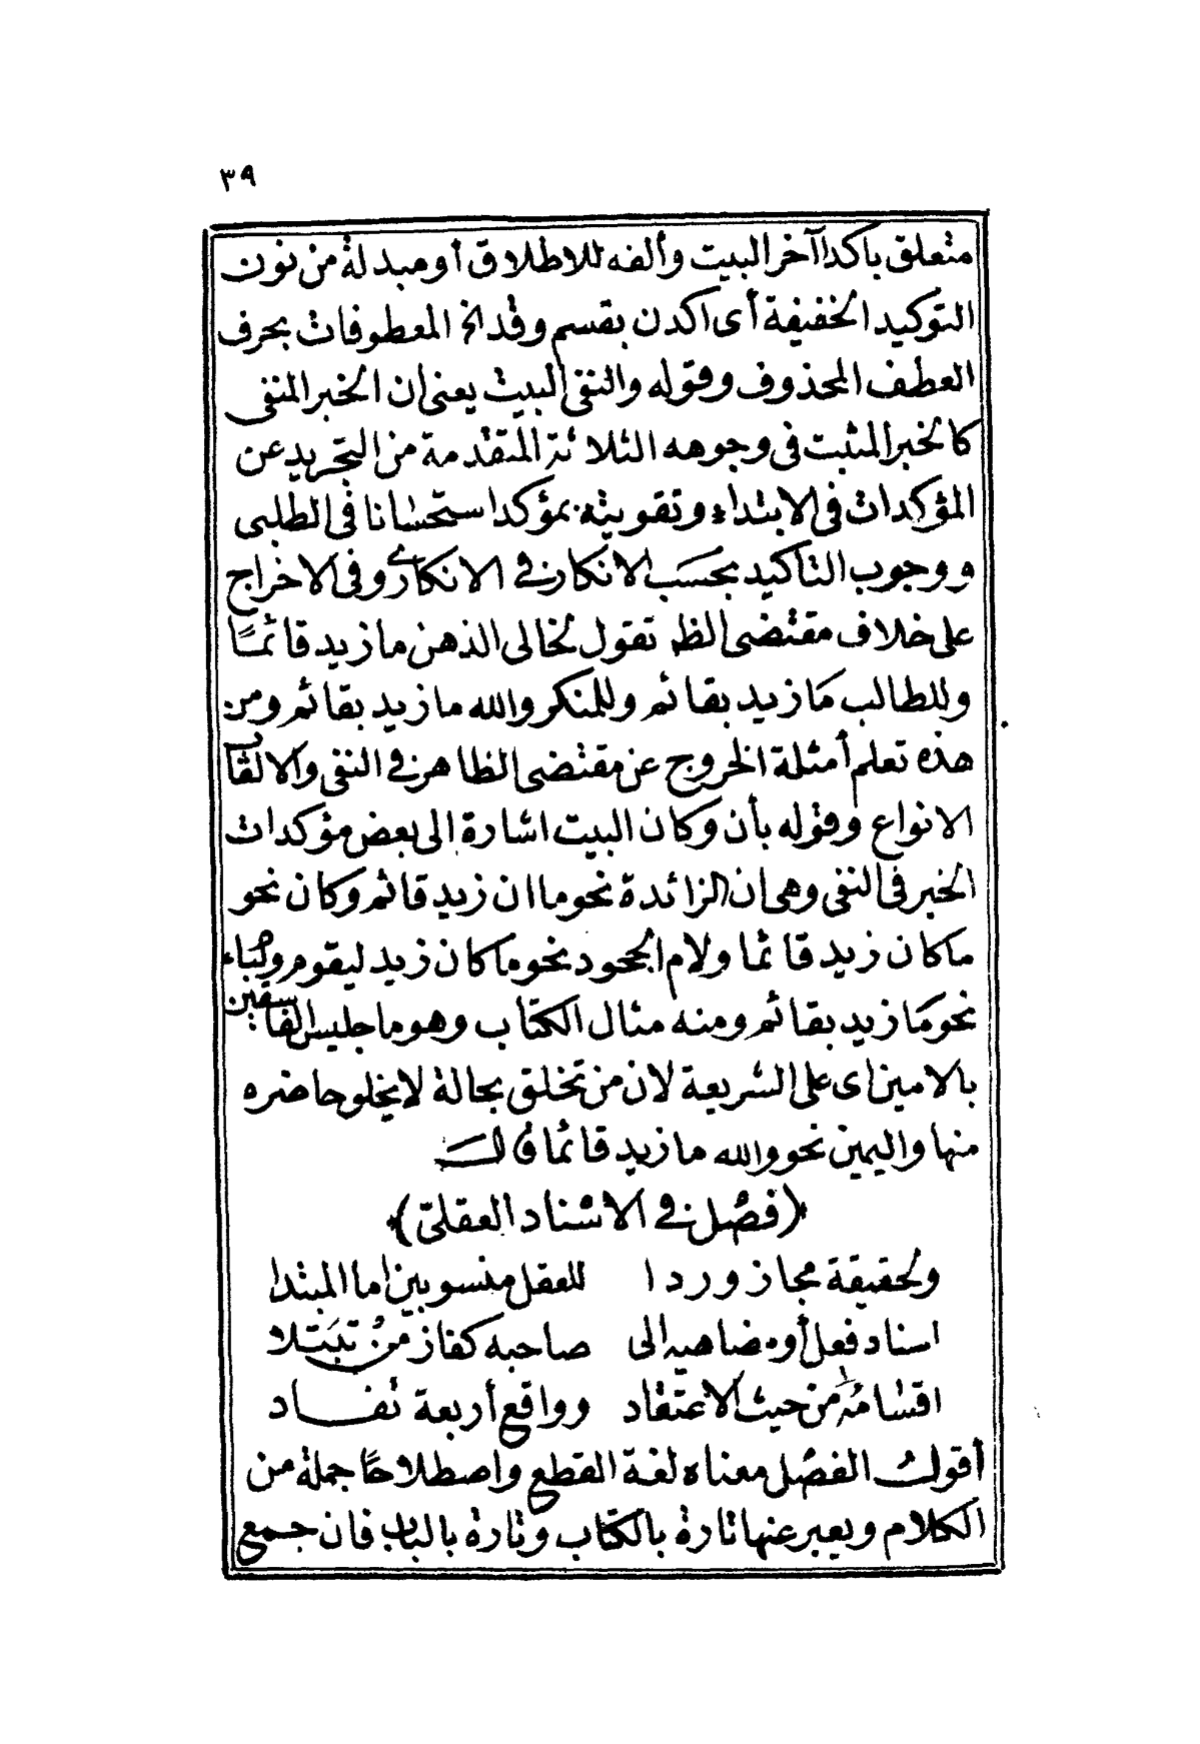 ٣٩
متعلق بأكدا آخر البيت وألفه للاطلاق أو مبدلة من نون
التوكيد الخفيفة أى اكدن بقسم وقد الخ المعطوفات بحرف
العطف المحذوف وقوله والنفى البيت يعنى ان الخبر المنفى
كالخبر المثبت فى وجوهه الثلاثة المتقدمة من التجريد عن
المؤكدات فى الابتداء وتقويته بمؤكد استحسانا فى الطلبى
ووجوب التأكيد بحسب الانكار فى الانكارى وفى الاخراج
على خلاف مقتضى الظ تقول لخالى الذهن ما زيد قائمًا
وللطالب مَا زيد بقائم وللمنكر والله ما زيد بقائم ومن
هذه تعلم أمثلة الخروج عن مقتضى الظاهر فى النفى والالقاب
الانواع وقوله بأن وكان البيت اشارة الى بعض مؤكدات
الخبر فى النفى وهى ان الزائدة نحو ما ان زيد قائم وكان نحو
ما كان زيد قائما ولام الجحود نحو ما كان زيد ليقوم والباء
نحو مَا زيد بقائم ومنه مثال الكتاب وهو ما جليس الفاسقين
بالامين اى على الشريعة لان من تخلق بحالة لا يخلو حاضره
منها واليمين نحو والله ما زيد قائما قال
﴿فصل فى الاسناد العقلىّ﴾
ولحقيقة مجاز وردا للعقل منسوبين اما المبتدا
اسناد فعل أو مضاهيه الى صاحبه كفاز مَنْ تبَتلا
اقسامُه من حيث الاعتقاد وواقع أربعة تفاد
أقول الفصْل معناه لغة القطع واصطلاحًا جملة من
الكلام ويعبر عنها تارة بالكتاب وتارة بالباب فان جمع